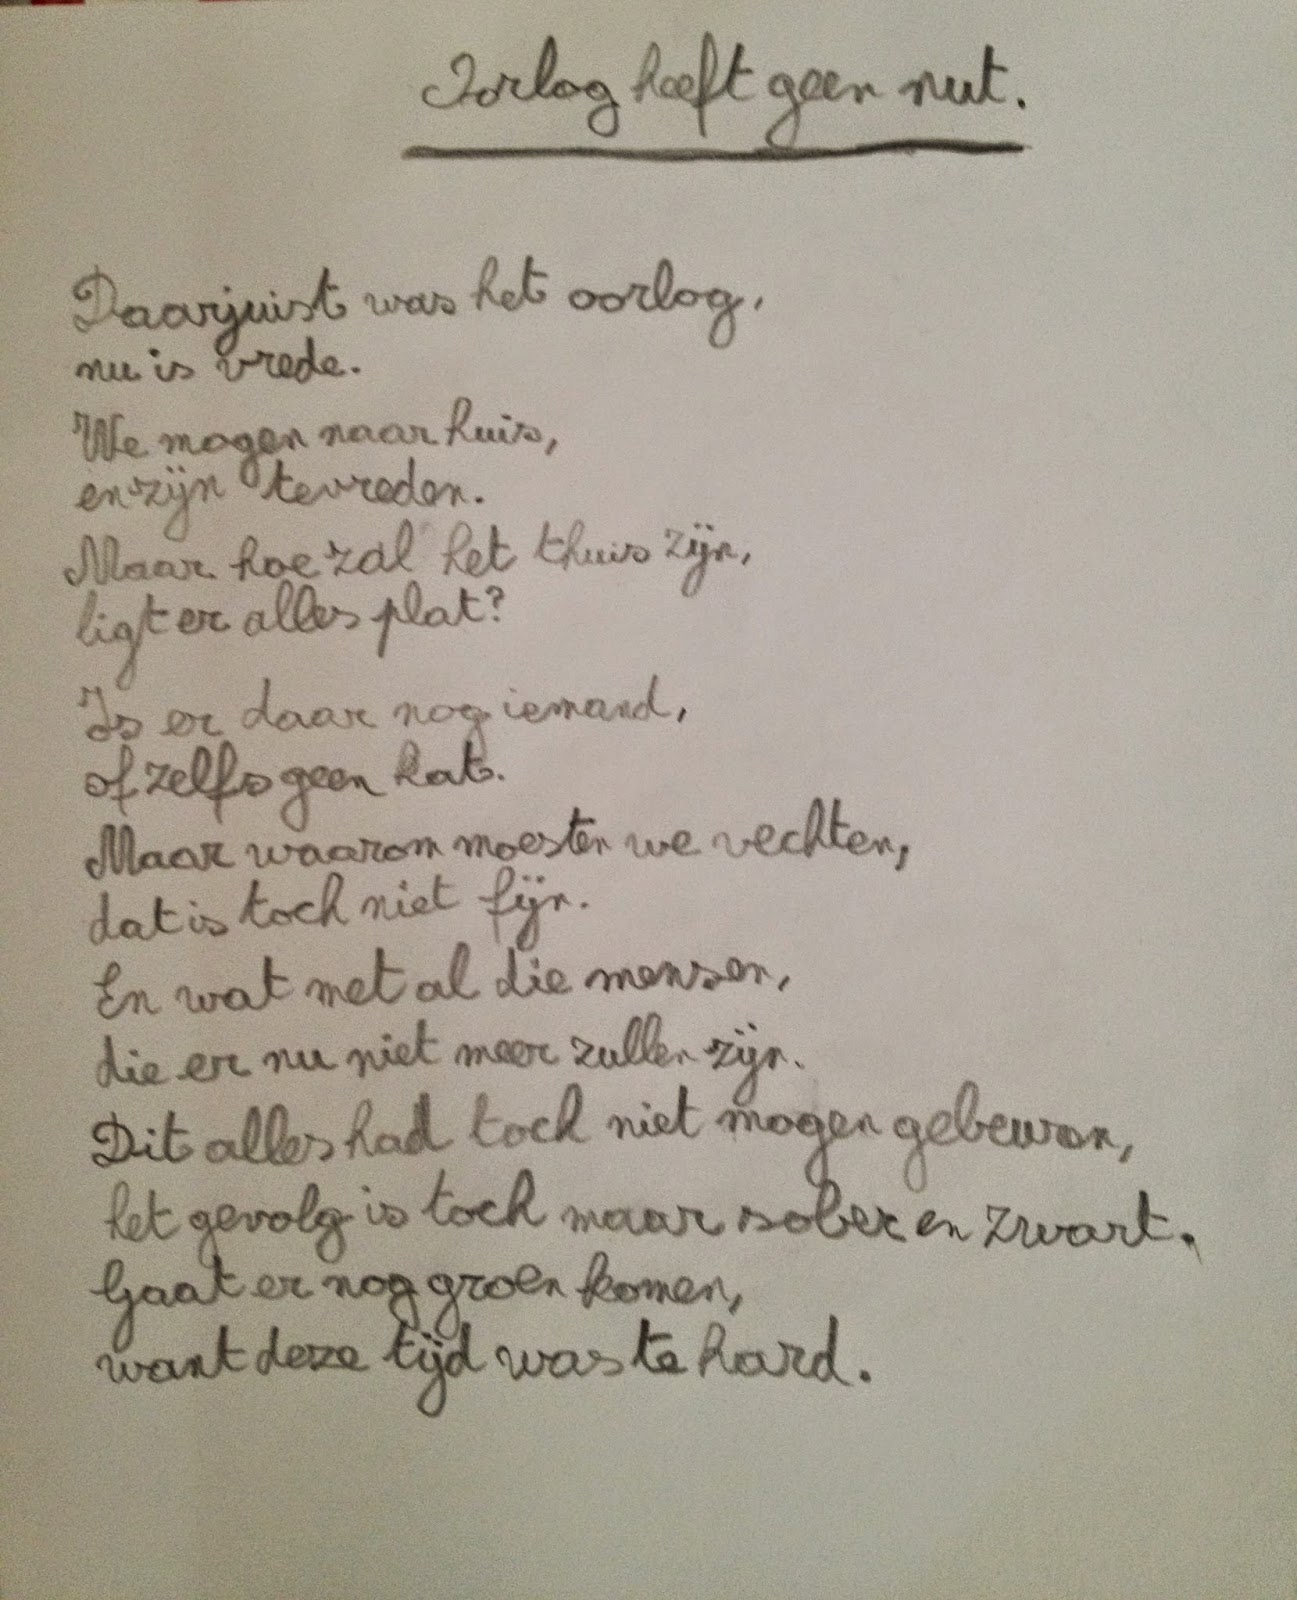 Oorlog heeft geen nut.
Daarjuist was het oorlog,
nu is vrede.
We mogen naar huis,
en zijn tevreden.
Maar hoe zal het thuis zijn,
ligt er alles plat?
Is er daar nog iemand,
of zelfs geen kat.
Maar waarom moesten we vechten,
dat is toch niet fijn.
En wat met al die mensen,
die er nu niet meer zullen zijn.
Dit alles had toch niet mogen gebeuren,
het gevolg is toch maar sober en zwart.
Gaat er nog groen komen,
want deze tijd was te hard.